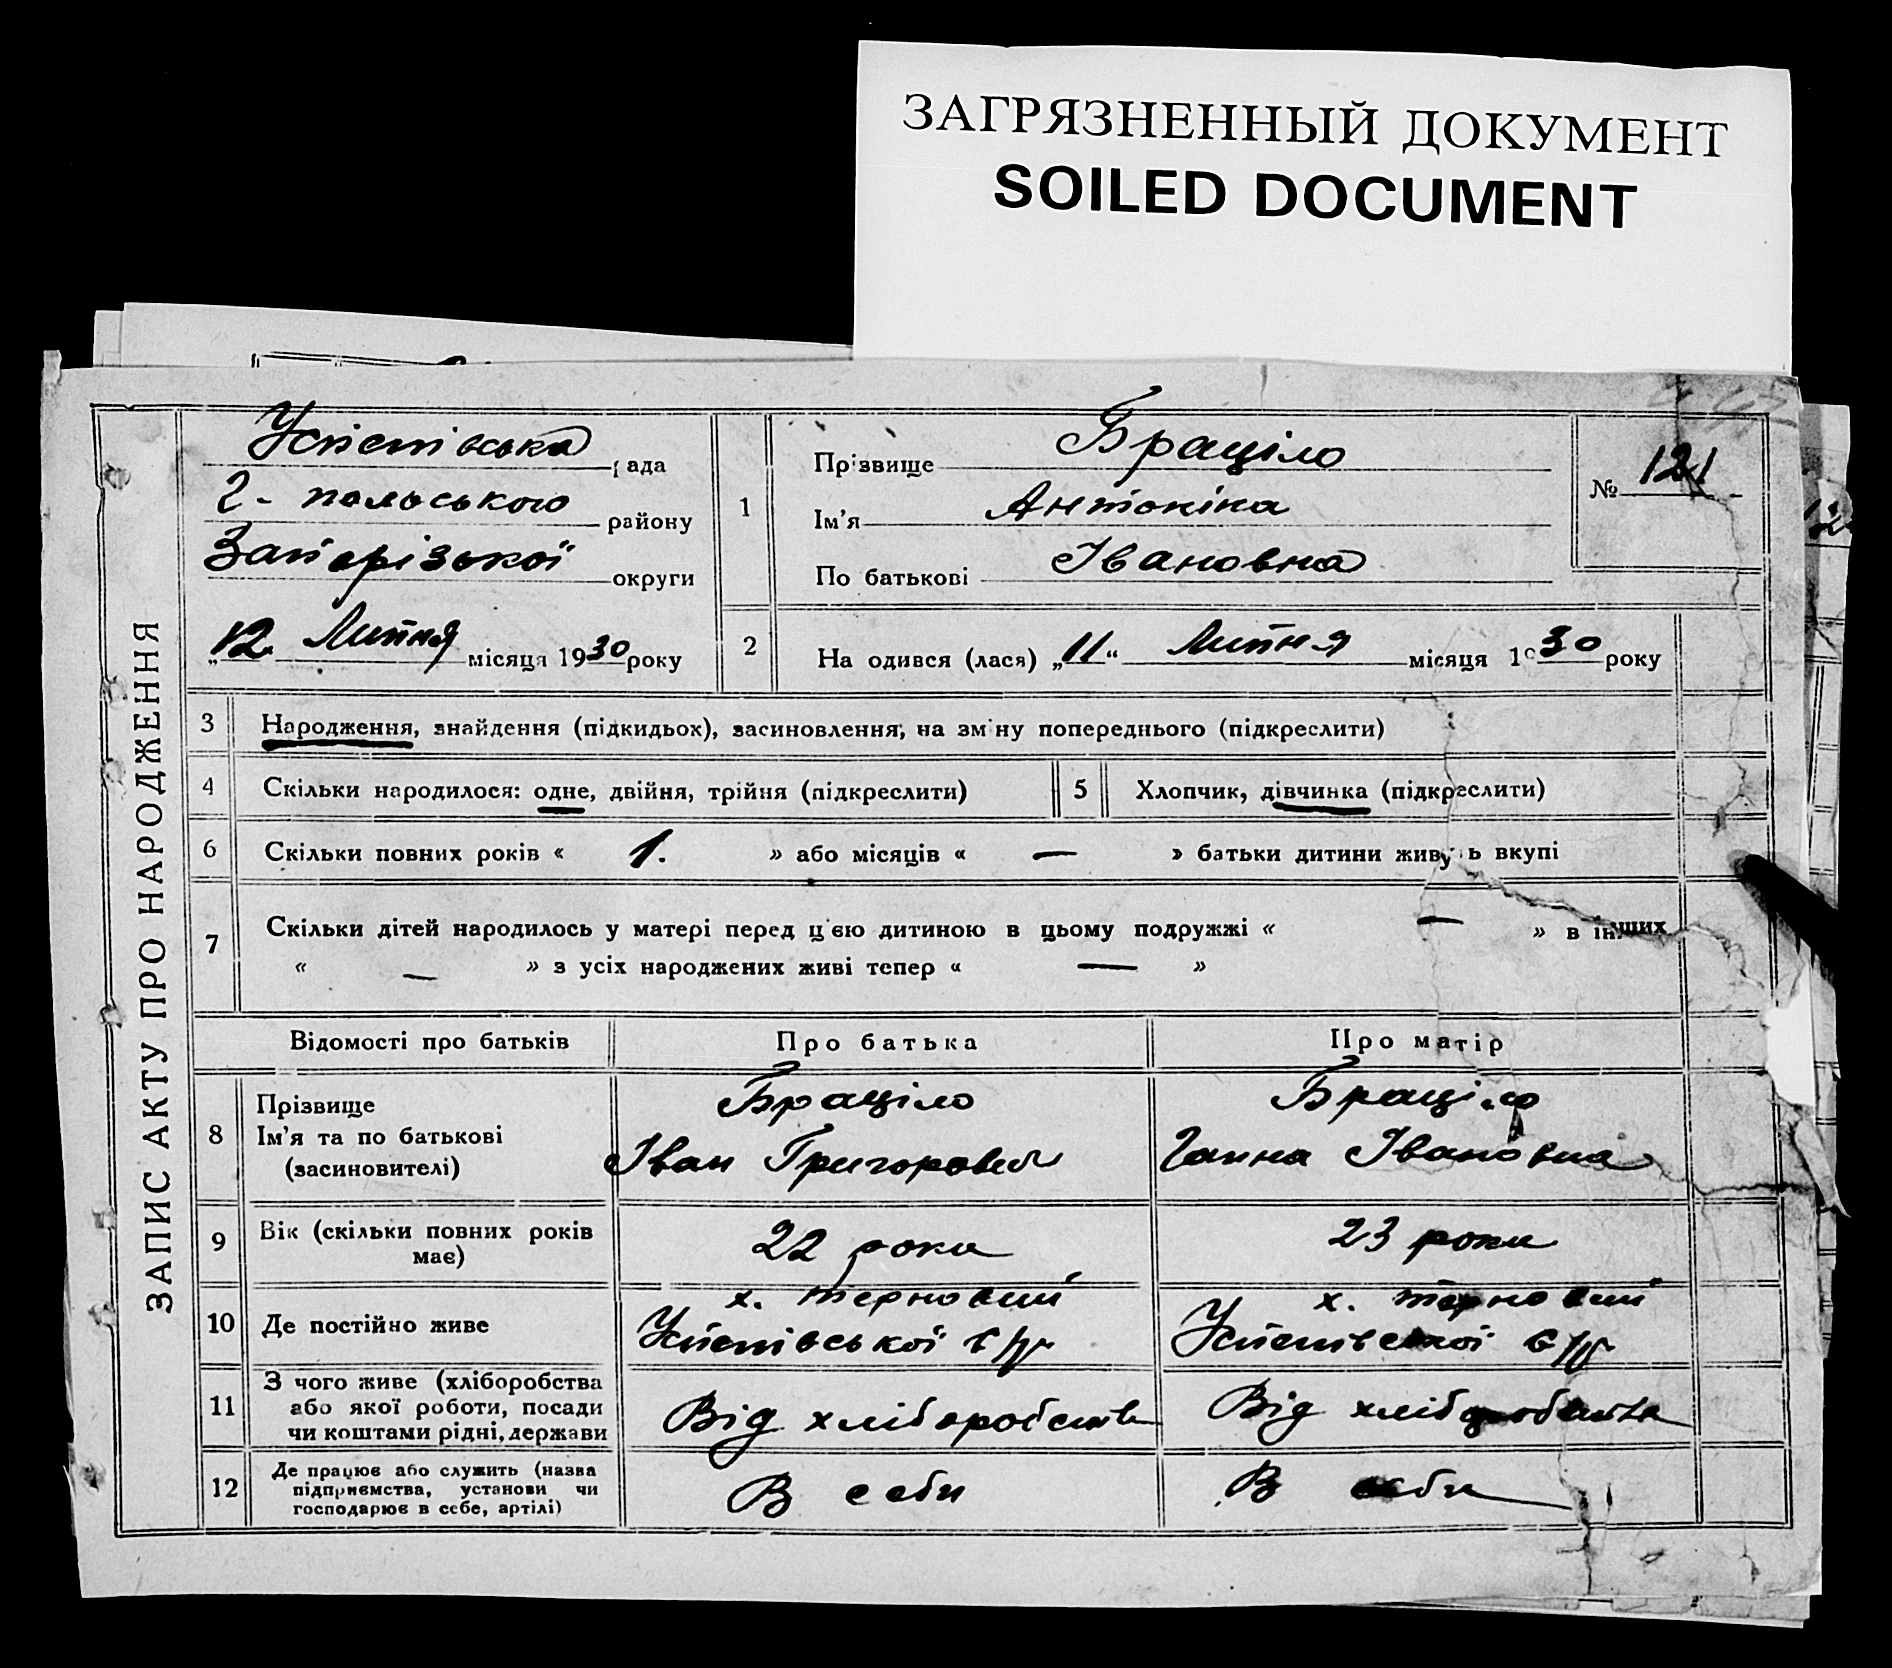 ЗАГРЯЗНЕННЫЙ ДОКУМЕНТ
SOILED DOCUMENT
ЗАПИС АКТУ ПРО НАРОДЖЕННЯ
Успенівська рада
Г-польського району
Запорізької округи
„12. Липня місяця 1930 року
1
Прізвище Браціло
Ім'я Антоніна
По батькові Івановна
№ 121
2
На одився (лася) „11“ Липня місяця 1930 року
3 Народження, знайдення (підкидьох), засиновлення, на зміну попереднього (підкреслити)
4 Скільки народилося: одне, двійня, трійня (підкреслити)
5 Хлопчик, дівчинка (підкреслити)
6 Скільки повних років « 1. » або місяців « — » батьки дитини живуть вкупі
7 Скільки дітей народилось у матері перед цією дитиною в цьому подружжі « — » в інших
« — » з усіх народжених живі тепер « — »
Відомості про батьків Про батька Про матір
8 Прізвище
Ім'я та по батькові
(засиновителі)
Браціло
Іван Григорович
Браціло
Ганна Івановна
9 Вік (скільки повних років
має)
22 роки
23 роки
10 Де постійно живе
х. Терновий
Успенівської с/р
х. Терновий
Успенівської с/р
11 З чого живе (хліборобства
або якої роботи, посади
чи коштами рідні, держави
Від хліборобства
Від хліборобства
12 Де працює або служить (назва
підприємства, установи чи
господарює в себе, артілі)
В себи
В себи